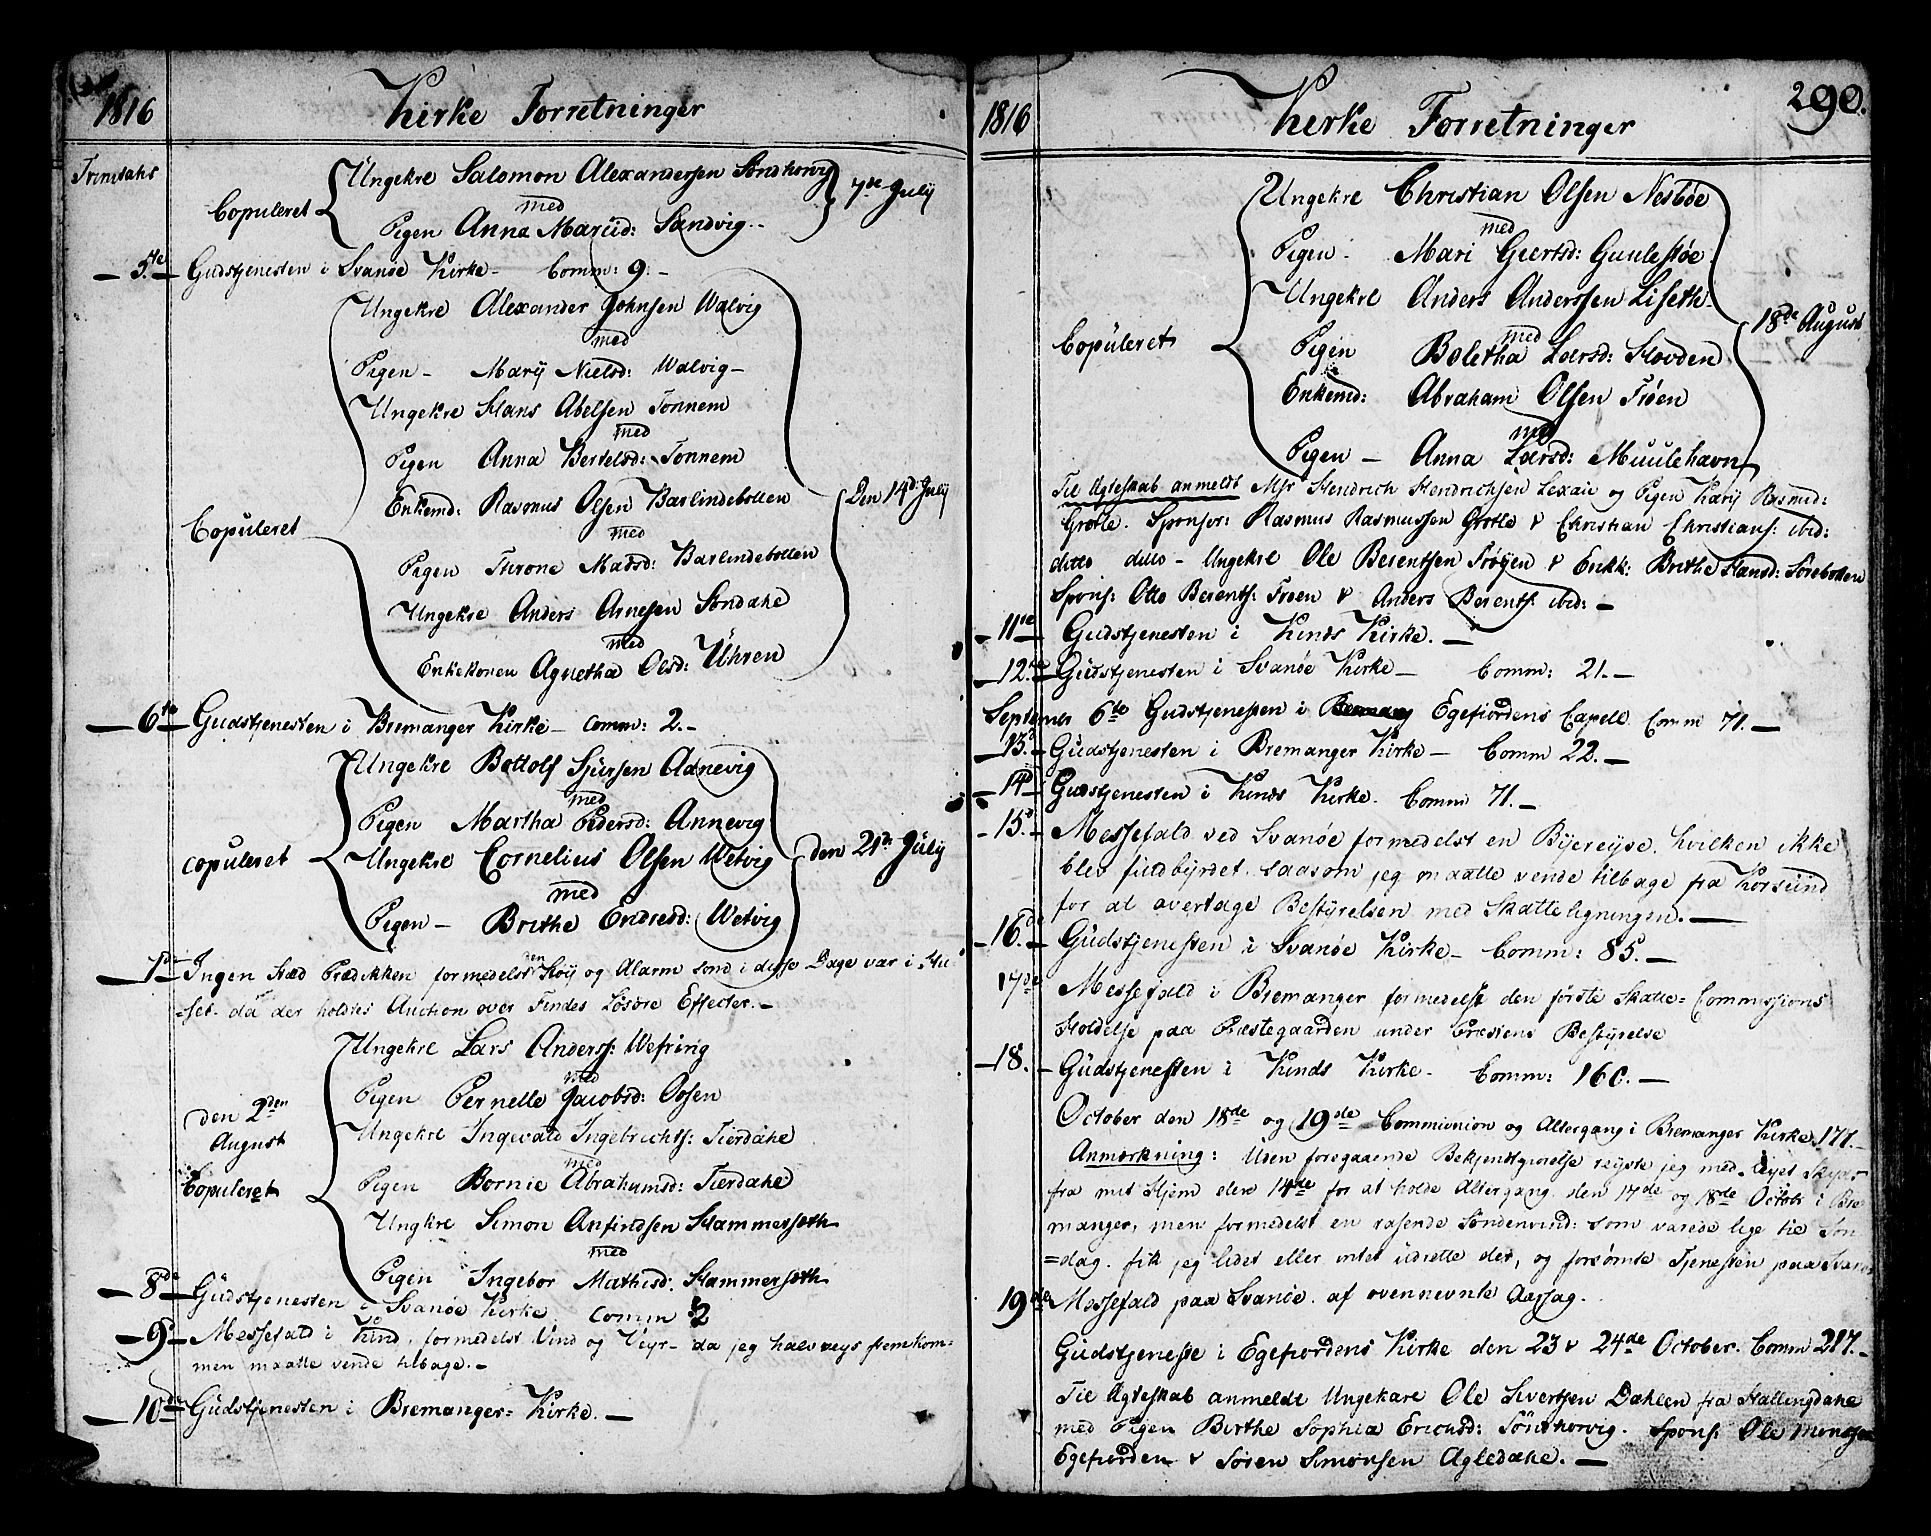 1816 Kirke Forretninger
Trinitatis
Ungekre Salomon Alexandersen Søndhorvig
med
Copuleret 7de Julij
Pigen Anna Mariæd: Sandvig
5te Gudstjenesten i Svanøe Kirke – Comm: 9. –
Ungekre Alexander Johnsen Walvig
med
Pigen – Marij Nielsd: Walvig –
Ungekre Hans Abelsen Tonnem
med
Pigen Anna Bertelsd: Tonnem
Enkemd: Rasmus Olsen Barlindebotten
Den 14d: Julij
Copuleret
med
Pigen Throne Madsd: Barlindebotten
Ungekre Anders Arnesen Søndahe
med
Enkekonen Agnetha Olsd: Ühren
6te Gudstjenesten i Bremanger Kirke – Comm: 2. –
Ungekre Bottolf Sjursen Adnevig
med
Pigen Martha Pedersd: Annevig
copuleret Ungekre Cornelius Olsen Wetvig den 21de Julij
med
Pigen – Brithe Endresd: Wetvig
7de Ingen Stæd Prædikken formedelst den Støij og Alarm som i disse Dage var i Hu-
=set. da der holdtes Auction over Findes Løsøre Effecter. –
Ungekre Lars Anderss: Wefring
med
Pigen Pernelle Jacobsd: Osen
den 2den August Copuleret
Ungekre Ingevald Ingebrichts: Tierdahe
med
Pigen Bornie Abrahamsd: Tierdahe
Ungkre Simon Anfindsen Hammersæth
med
Pigen Ingebor Mathisd: Hammersæth
8de Gudstjenesten i Svanøe Kirke Comm 2
9de Messefald i Kind, formedelst Vind og Veyr – da jeg halvveys fremkom-
men maatte vende tilbage. –
10de Gudstjenesten i Bremanger= Kirke. –
1816 Kirke Forretninger 290.
Ungekre Christian Olsen Nesbøe
med
Pigen – Mari Geertsd: Guulestøe
Ungekre Anders Anderssen Liseth
18de August
Copuleret
med
Pigen Boletha Lærsd: Hovden
Enkemd: Abraham Olsen Frøen
med
Pigen – Anna Lærsd: Muulehavn
Til Ægteskab anmeldt Msr Hendrich Hendrichsen Lexau og Pigen Karij Rasmd:
Grotle. Sponsor: Rasmus Rasmussen Grotle & Christian Christians: ibid:
ditto ditto – Ungekre Ole Berentsen Frøijen & Enkk: Brithe Hansd: Sørebotten
Spons: Otto Berents: Frøen & Anders Berents: ibid: –
11te Gudstjenesten i Kinds Kirke. –
12te Gudstjenesten i Svanøe Kirke – Comm: 21. –
September 6te Gudstjenesten i Egefiordens Capell Comm 71. –
13de Gudstjenesten i Bremanger Kirke – Comm 22. –
14d Gudstjenesten i Kinds Kirke. Comm 71. –
15d Messefald ved Svanøe formedelst en Byereyse, hvilken ikke
blev fuldbyrdet. saasom jeg maatte vende tilbage fra Korssund
for at overtage Bestyrelsen med Skatteligningen. –
16de Gudstjenesten i Svanøe Kirke – Comm: 85. –
17de Messefald i Bremanger formedelst den første Skatte= Commissions
Holdelse paa Præstegaarden under Præstens Bestyrelse
18. Gudstjenesten i Kinds Kirke – Comm: 160. –
October den 18de og 19de Communion og Altergang i Bremanger Kirke 177. –
Anmærkning: Uden foregaaende Bekjendtgiørelse reyste jeg med Leyet Skyds
fra mit Hjem den 14de for at holde Altergang den 17de og 18de Octobr i Bre
manger, men formedelst en rasende Søndenvind: som varede lige til Søn
=dag. fik jeg lidet eller intet udrette der, og forsømte Tjenesten paa Svanøe
19de Messefald paa Svanøe. af ovennevnte Aarsag.
Gudstjeneste i Egefiordens Kirke den 23 & 24de October. Comm 217. –
Til Ægteskab anmeldt Ungekare Ole Sivertsen Dahlen fra Hallingdahe
med Pigen Birthe Sophia Ericksd: Sönskorvig. Spons: Ole Monssen
Egefiorden & Søren Simonsen Agledahe. –